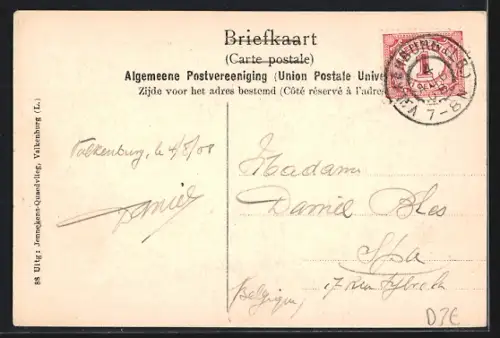 Briefkaart
(Carte postale)
Algemeene Postvereeniging (Union Postale Unive
Zijde voor het adres bestemd (Côté réservé à l'adre
1
VALKENBURG (L.)
7-8 N
Valkenburg, le 4/8/08
Daniel
Madame
Daniel Bles
Spa
17 rue
Belgique
D3E
88 Uitg: Jennekens-Quaedvlieg, Valkenburg (L.)